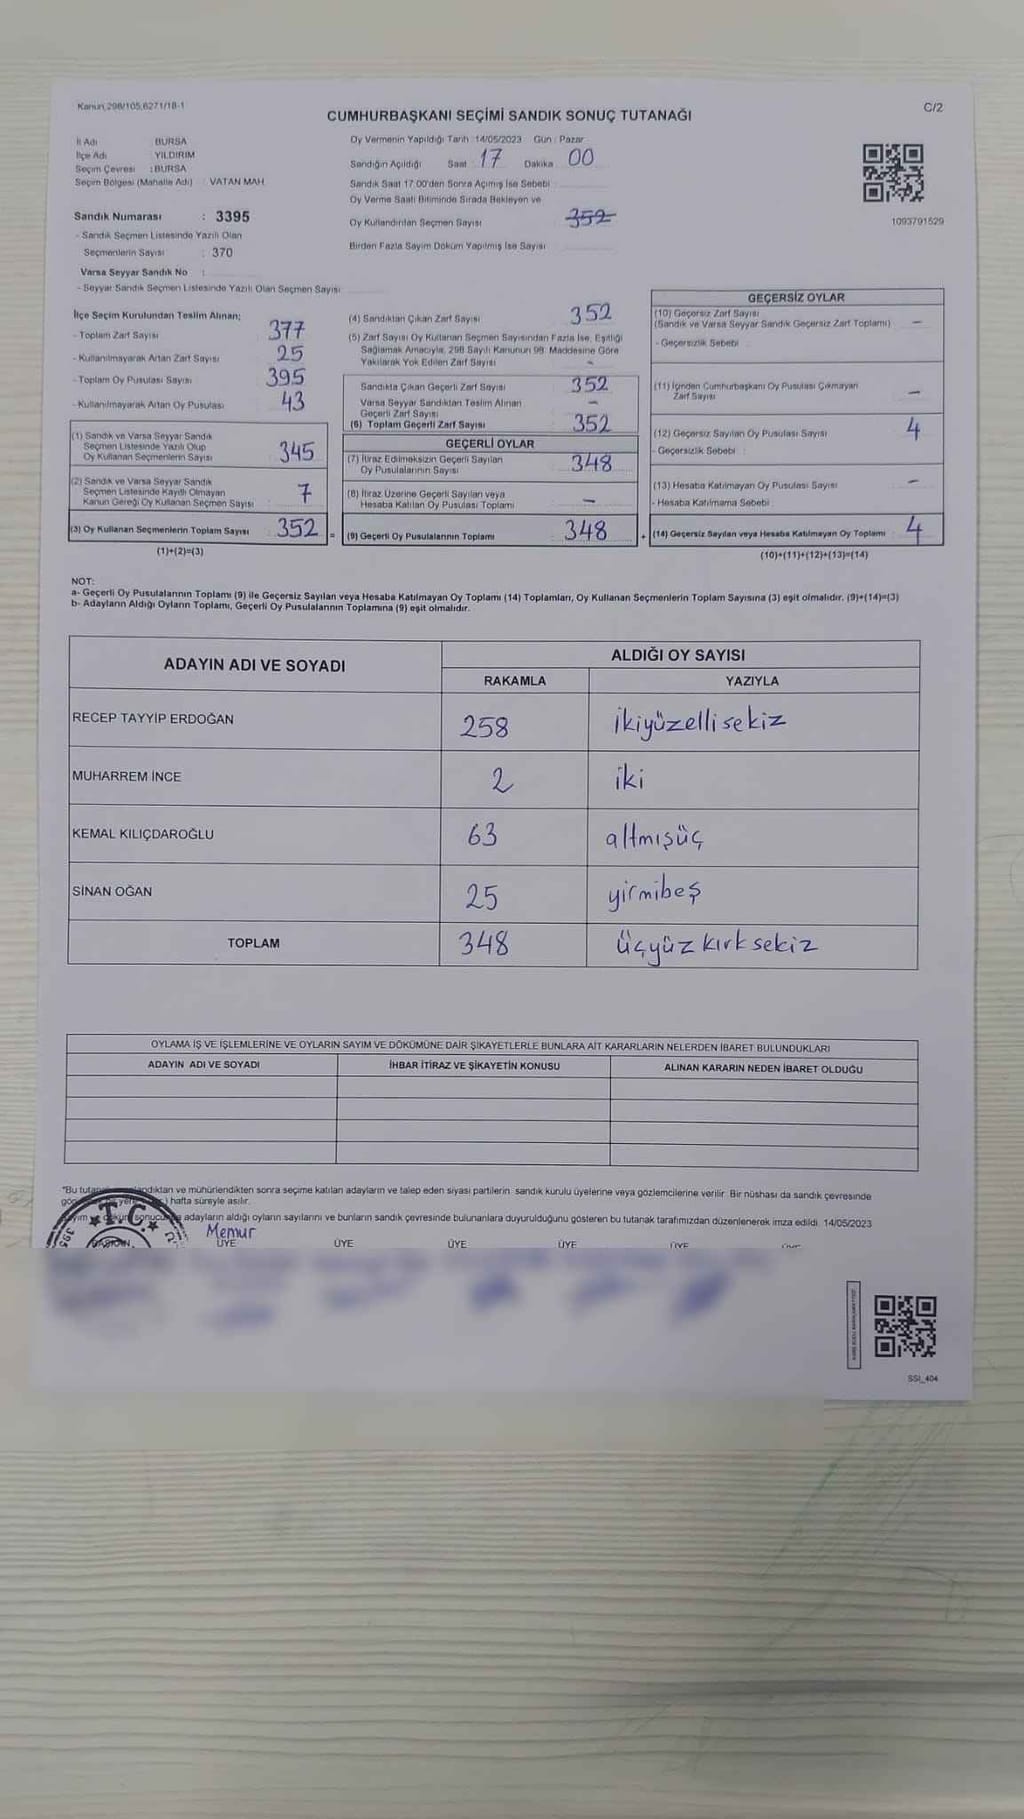 Kanun 298/105,6271/18-1
C/2
CUMHURBAŞKANI SEÇİMİ SANDIK SONUÇ TUTANAĞI
İl Adı BURSA
İlçe Adı YILDIRIM
Seçim Çevresi : BURSA
Seçim Bölgesi (Mahalle Adı) : VATAN MAH.
Oy Vermenin Yapıldığı Tarih : 14/05/2023 Gün : Pazar
Sandığın Açıldığı Saat 17 Dakika 00
Sandık Saat 17:00'den Sonra Açılmış İse Sebebi
Oy Verme Saati Bitiminde Sırada Bekleyen ve
Oy Kullandırılan Seçmen Sayısı 352
Birden Fazla Sayım Döküm Yapılmış İse Sayısı
1093791529
Sandık Numarası : 3395
- Sandık Seçmen Listesinde Yazılı Olan
Seçmenlerin Sayısı : 370
Varsa Seyyar Sandık No :
- Seyyar Sandık Seçmen Listesinde Yazılı Olan Seçmen Sayısı
İlçe Seçim Kurulundan Teslim Alınan;
- Toplam Zarf Sayısı 377
- Kullanılmayarak Artan Zarf Sayısı 25
- Toplam Oy Pusulası Sayısı 395
- Kullanılmayarak Artan Oy Pusulası 43
(1) Sandık ve Varsa Seyyar Sandık
Seçmen Listesinde Yazılı Olup
Oy Kullanan Seçmenlerin Sayısı 345
(2) Sandık ve Varsa Seyyar Sandık
Seçmen Listesinde Kayıtlı Olmayan
Kanun Gereği Oy Kullanan Seçmen Sayısı 7
(3) Oy Kullanan Seçmenlerin Toplam Sayısı 352 =
(1)+(2)=(3)
(4) Sandıktan Çıkan Zarf Sayısı 352
(5) Zarf Sayısı Oy Kullanan Seçmen Sayısından Fazla İse, Eşitliği
Sağlamak Amacıyla, 298 Sayılı Kanunun 98. Maddesine Göre
Yakılarak Yok Edilen Zarf Sayısı -
Sandıkta Çıkan Geçerli Zarf Sayısı 352
Varsa Seyyar Sandıktan Teslim Alınan
Geçerli Zarf Sayısı -
(6) Toplam Geçerli Zarf Sayısı 352
GEÇERLİ OYLAR
(7) İtiraz Edilmeksizin Geçerli Sayılan
Oy Pusulalarının Sayısı 348
(8) İtiraz Üzerine Geçerli Sayılan veya
Hesaba Katılan Oy Pusulası Toplamı -
(9) Geçerli Oy Pusulalarının Toplamı 348 +
GEÇERSİZ OYLAR
(10) Geçersiz Zarf Sayısı
(Sandık ve Varsa Seyyar Sandık Geçersiz Zarf Toplamı) -
- Geçersizlik Sebebi
(11) İçinden Cumhurbaşkanı Oy Pusulası Çıkmayan
Zarf Sayısı -
(12) Geçersiz Sayılan Oy Pusulası Sayısı 4
- Geçersizlik Sebebi :
(13) Hesaba Katılmayan Oy Pusulası Sayısı -
- Hesaba Katılmama Sebebi
(14) Geçersiz Sayılan veya Hesaba Katılmayan Oy Toplamı 4
(10)+(11)+(12)+(13)=(14)
NOT:
a- Geçerli Oy Pusulalarının Toplamı (9) ile Geçersiz Sayılan veya Hesaba Katılmayan Oy Toplamı (14) Toplamları, Oy Kullanan Seçmenlerin Toplam Sayısına (3) eşit olmalıdır. (9)+(14)=(3)
b- Adayların Aldığı Oyların Toplamı, Geçerli Oy Pusulalarının Toplamına (9) eşit olmalıdır.
ADAYIN ADI VE SOYADI ALDIĞI OY SAYISI
RAKAMLA YAZIYLA
RECEP TAYYİP ERDOĞAN 258 ikiyüzellisekiz
MUHARREM İNCE 2 iki
KEMAL KILIÇDAROĞLU 63 altmışüç
SİNAN OĞAN 25 yirmibeş
TOPLAM 348 üçyüz kırk sekiz
OYLAMA İŞ VE İŞLEMLERİNE VE OYLARIN SAYIM VE DÖKÜMÜNE DAİR ŞİKAYETLERLE BUNLARA AİT KARARLARIN NELERDEN İBARET BULUNDUKLARI
ADAYIN ADI VE SOYADI İHBAR İTİRAZ VE ŞİKAYETİN KONUSU ALINAN KARARIN NEDEN İBARET OLDUĞU
"Bu ve mühürlendikten sonra seçime katılan adayların ve talep eden siyasi partilerin sandık kurulu üyelerine veya gözlemcilerine verilir. Bir nüshası da sandık çevresinde
hafta süreyle asılır.
adayların aldığı oyların sayılarını ve bunların sandık çevresinde bulunanlara duyurulduğunu gösteren bu tutanak tarafımızdan düzenlenerek imza edildi. 14/05/2023
T.C.
Memur
BAŞKAN ÜYE ÜYE ÜYE ÜYE ÜYE
SSI_404